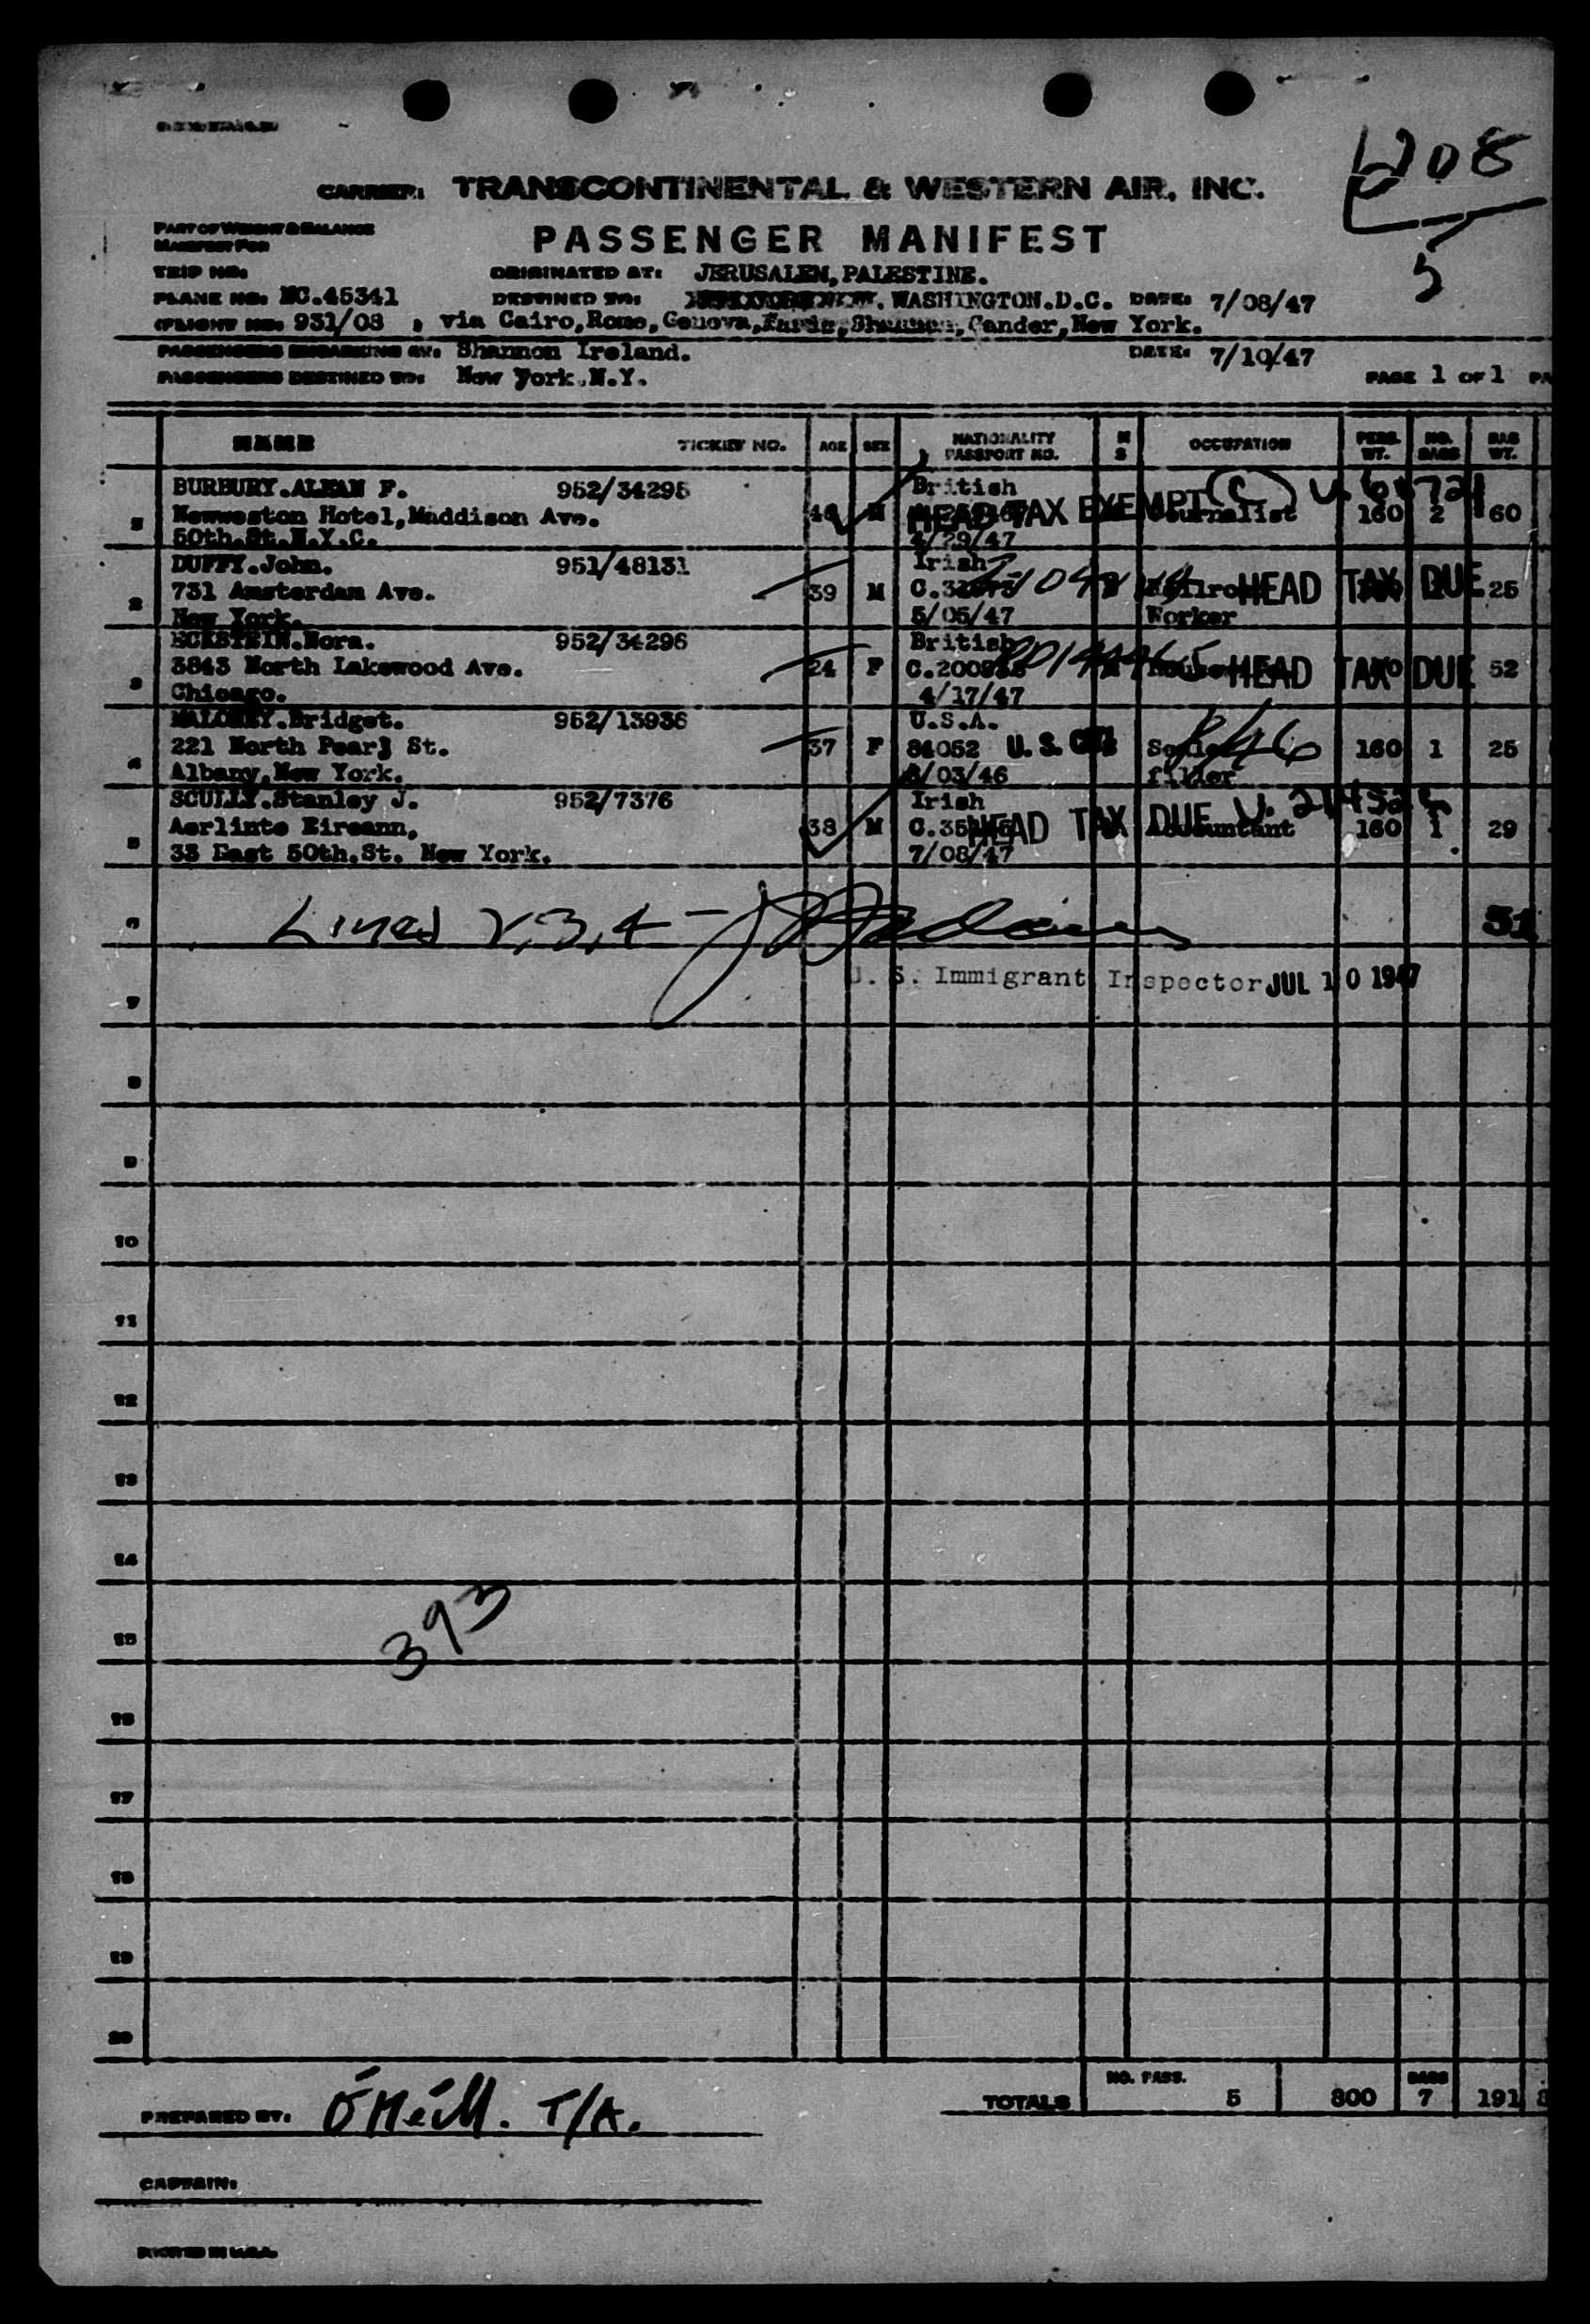 1208
5
CARRIER: TRANSCONTINENTAL & WESTERN AIR, INC.
PART OF WEIGHT & BALANCE
MANIFEST FOR
PASSENGER MANIFEST
TRIP NO.
ORIGINATED AT: JERUSALEM, PALESTINE.
PLANE NO: NC.45341
DESTINED TO: WASHINGTON.D.C. DATE: 7/08/47
(FLIGHT NO: 931/08 , via Cairo,Rome,Genova,Paris,Shannon,Gander,New York.
PASSENGERS EMBARKING AT: Shannon Ireland. DATE: 7/10/47
PASSENGERS DESTINED TO: New York.N.Y. PAGE 1 OF 1 PA
NAME TICKET NO. AGE SEX NATIONALITY PASSPORT NO. M S OCCUPATION PERS. WT. NO. BAGS BAG WT.
BURBURY.ALBAN F. 952/34295 British
1 Newweston Hotel,Maddison Ave. HEAD TAX EXEMPT Journalist 160 2 60
50th.St.N.Y.C. 4/29/47
DUFFY.John. 951/48131 Irish
2 731 Amsterdam Ave. 39 M HEAD TAX DUE 25
New York. 5/05/47 Worker
ECKSTEIN.Nora. 952/34296 British
3 3843 North Lakewood Ave. 24 F HEAD TAX DUE 52
Chicago. 4/17/47
MALONEY.Bridget. 952/13936 U.S.A.
4 221 North Pearl St. 37 F 84052 U. S. CIT 160 1 25
Albany,New York. /03/46 filler
SCULLY.Stanley J. 952/7376 Irish
5 Aerlinte Eireann, 38 M HEAD TAX DUE Accountant 160 1 29
33 East 50th.St. New York. 7/08/47
6 Lines 2,3,4 -
7 U. S. Immigrant Inspector JUL 10 1947
8
9
10
11
12
13
14
393
15
16
17
18
19
20
NO. PASS. BAGS
TOTALS 5 800 7 191
PREPARED BY: O'Neill. T/A.
CAPTAIN:
PRINTED IN U.S.A.